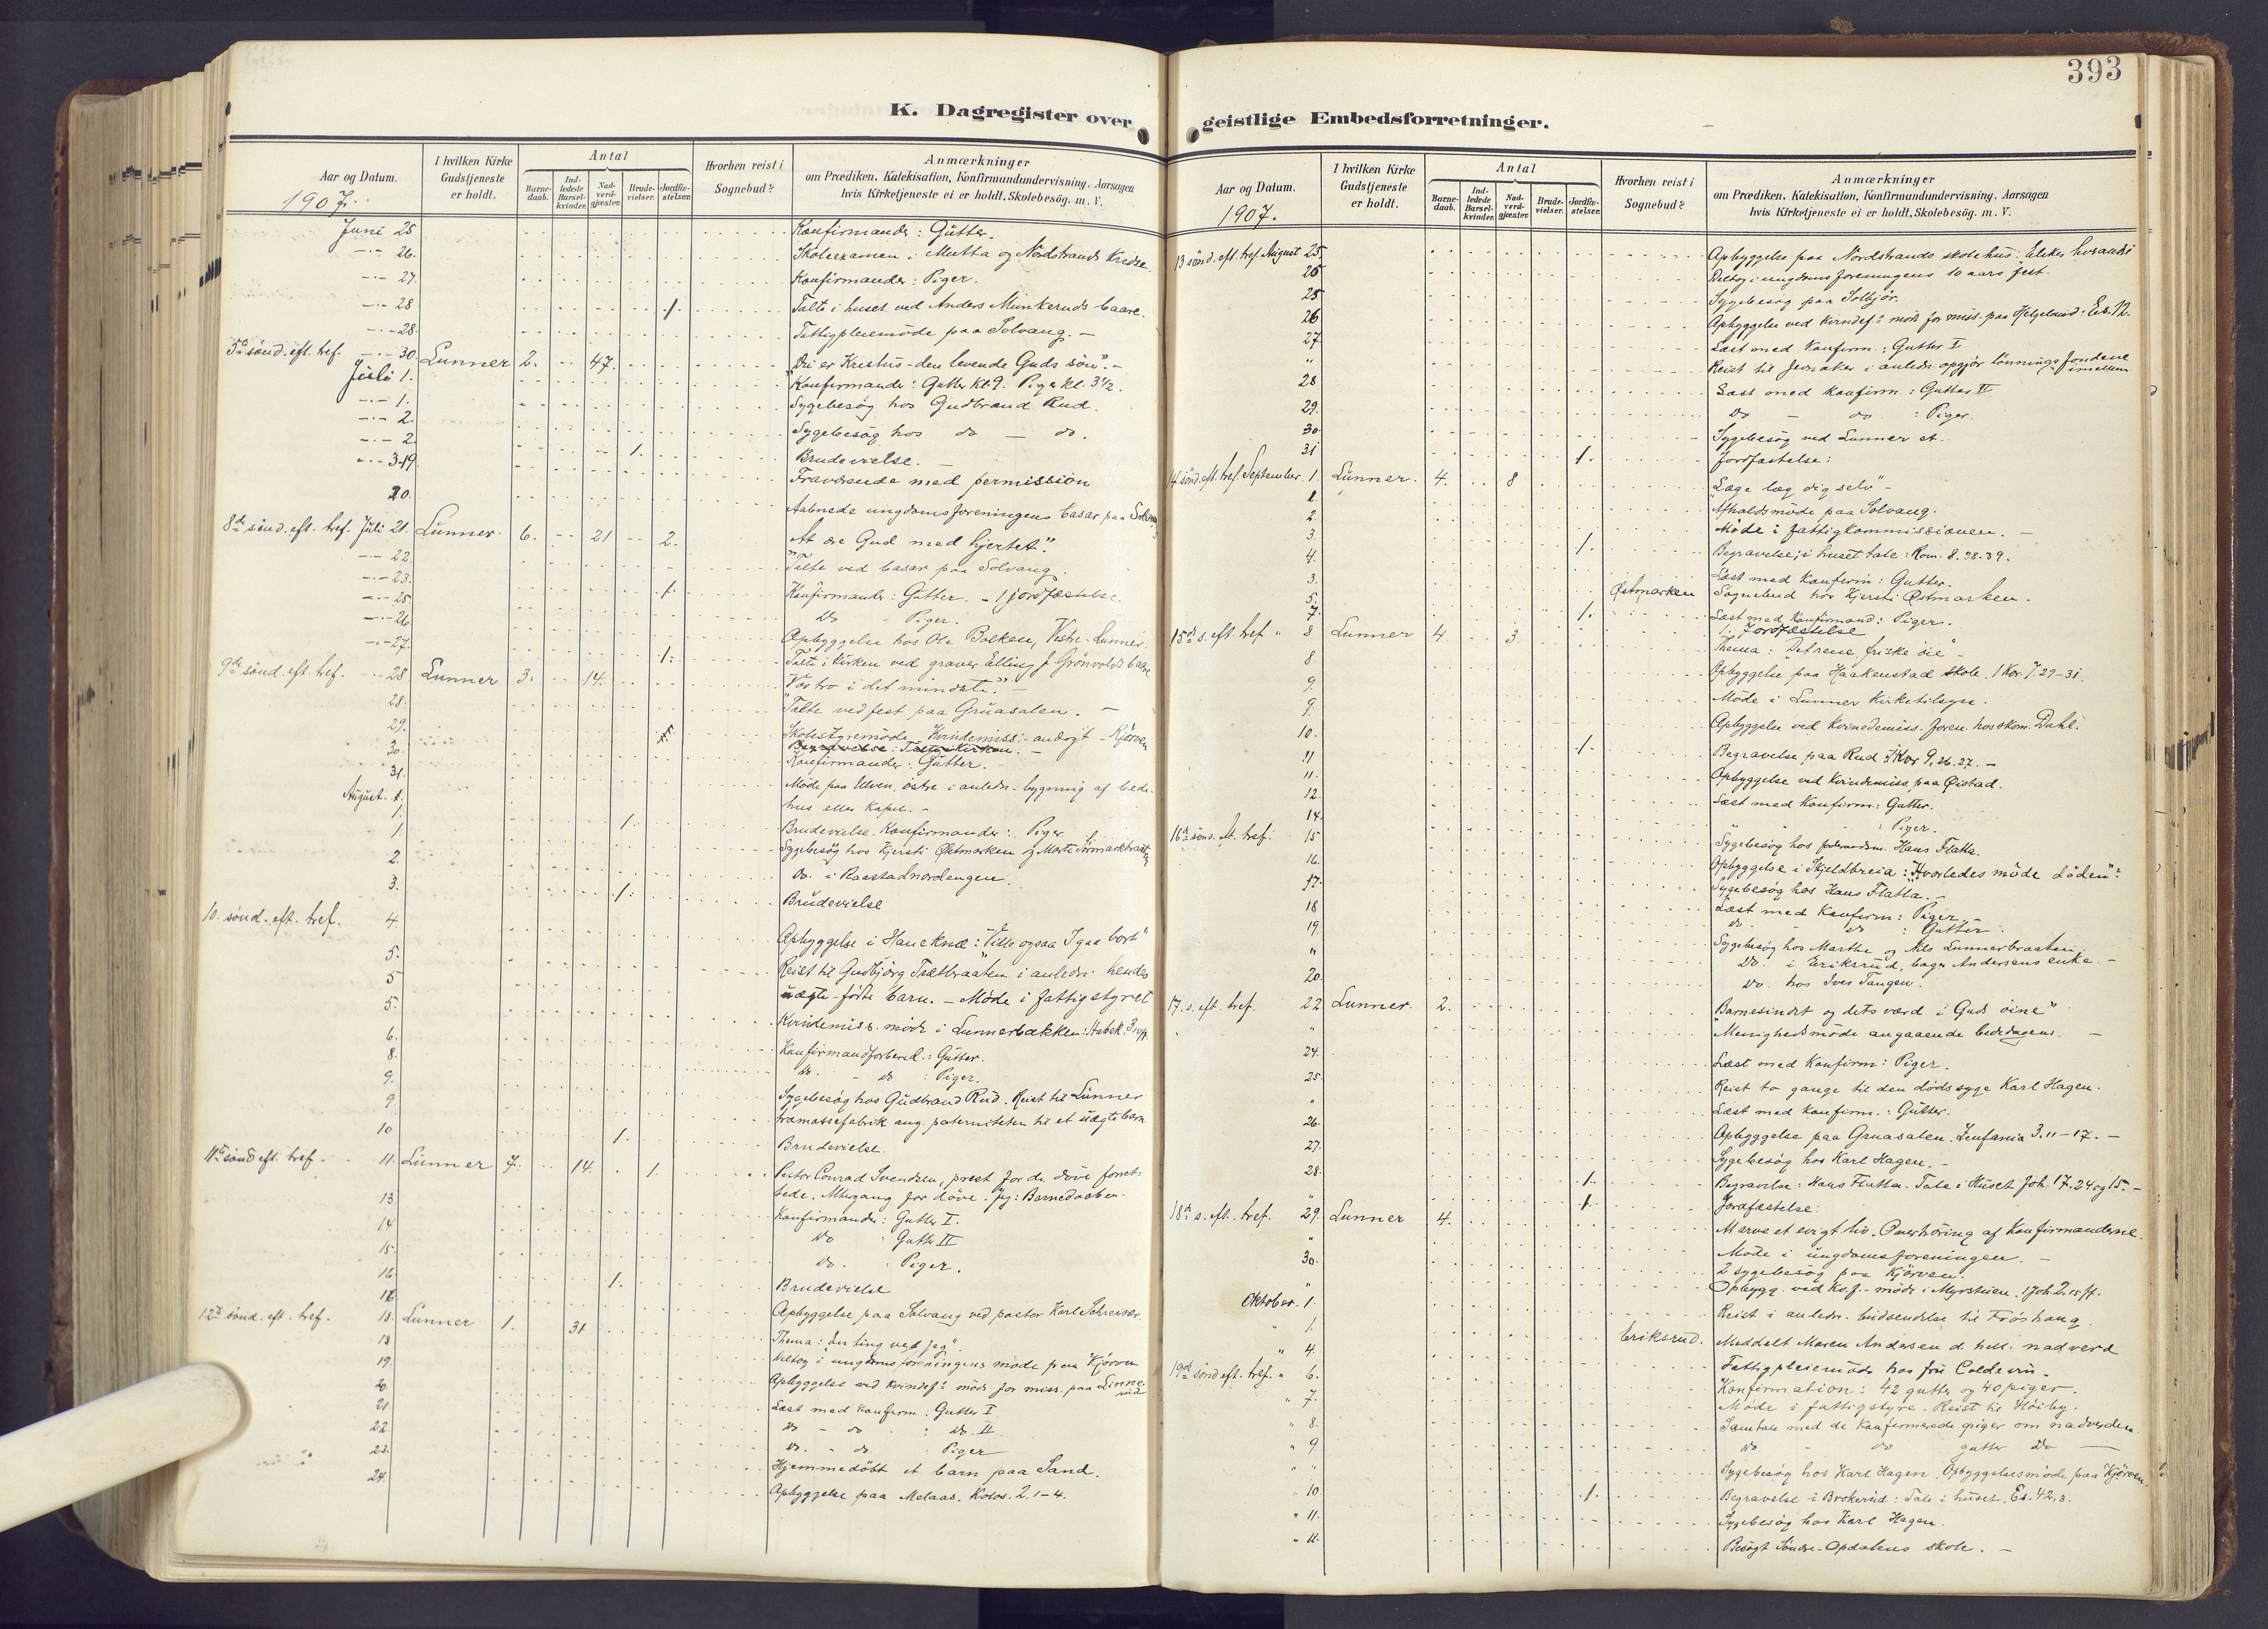 393
K. Dagregister over geistlige Embedsforretninger.
Aar og Datum.
1907.
I hvilken Kirke Gudstjeneste er holdt.
Antal
Barne-daab.
Ind-ledede Barsel-kvinder.
Nad-verd-gjæster.
Brude-vielser.
Jordfæ-stelser.
Hvorhen reist i Sognebud?
Anmærkninger
om Prædiken, Katekisation, Konfirmandundervisning, Aarsagen
hvis Kirketjeneste ei er holdt, Skolebesög. m. V.
Juni 25 Konfirmander: Gutter.
-"- 26. Skoleexamen i Mutta og Nordstrands Kredse.
-"- 27. Konfirmander: Piger.
-"- 28 1. Talte i huset ved Anders Munkeruds baare.
-"- 28. Fattigpleiemöde paa Solvang. -
5te sönd. eft. tref. -"- 30. Lunner 2. 47. "Du er Kristus - den levende Guds sön". -
Juli 1. Konfirmander: Gutter kl. 9. Piger kl. 3 1/2.
-"- 1. Sygebesög hos Gudbrand Rud.
-"- 2. Sygebesög hos do - do.
-"- 2. 1. Brudevielse. -
-"- 3-19. Fraværende med permission
20. Aabnede ungdomsforeningens basar paa Solvang
8de sönd. eft. tref. Juli 21. Lunner. 6. 21 2. "At se Gud med hjertet".
-"- 22. Talte ved basar paa Solvang.
-"- 23. 1. Konfirmander: Gutter. - 1 jordfæstelse.
-"- 25 Do - Piger.
-"- 26 Opbyggelse hos Ole Bolken, Vestre-Lunner.
-"- 27. 1. Talte i kirken ved graver Elling J. Grönvolds baare
9de sönd. eft. tref. -"- 28 Lunner 3. 14. "Vær tro i det mindste." -
28. Talte ved fest paa Gruasalen. -
29. Skolestyremöde Kvindemiss:-andagt - Kjörven
30. Begravelse: Tale i kirken. -
Konfirmander: Gutter. -
31. Möde paa Ulven, östre i anledn. bygning af bede-
hus eller kapel. -
August 1. 1. Brudevielse. Konfirmander: Piger
1. Sygebesög hos Kjersti Østmarken og Marte Sörmarkbraaten
1. do. i Raastadnordengen.
2.
3. 1. Brudevielse
10. sönd. eft. tref. 4. Opbyggelse i Haneknæ: "Ville ogsaa I gaa bort"
5. Reist til Gudbjörg Tvetbraaten i anledn. hendes
5 uægte-födte barn. - Möde i fattigstyret
5. Kvindemiss. möde i Lunnerbakken: Habak. 3, 17 ff.
6. Konfirmandforbered.: Gutter.
8. do. - do : Piger.
9. Sygebesög hos Gudbrand Rud. Reist til Lunner
9. træmassefabrik ang. paterniteten til et uægte barn.
10 1. Brudevielse.
11te sönd eft. tref. - 11. Lunner 7. 14. 1. Pastor Conrad Svendsen, prest for de döve forret-
tede. Altergang for döve. Jeg: Barnedaaben.
13 Konfirmander: Gutter I.
14 Do : Gutter II
15. Do. : Piger.
16 1. Brudevielse
16. Opbyggelse paa Solvang ved pastor Karl Schreiner.
12te sönd. eft. tref. 18. Lunner 1. 31 Thema: "En ting ved jeg".
18 Deltog i ungdomsforeningens möde paa Kjörven
19. Opbyggelse ved kvindef:s möde for miss. paa Linne-
rud
20. Læst med konfirm. Gutter I
21 Do - do : do. II
22. Do. - do. : Piger
23. Hjemmedöbt et barn paa Sand.
24. Opbyggelse paa Melaas. Kolos. 2. 1-4.
Aar og Datum.
1907.
I hvilken Kirke Gudstjeneste er holdt.
Antal
Barne-daab.
Ind-ledede Barsel-kvinder.
Nad-verd-gjæster.
Brude-vielser.
Jordfæ-stelser.
Hvorhen reist i Sognebud?
Anmærkninger
om Prædiken, Katekisation, Konfirmandundervisning, Aarsagen
hvis Kirketjeneste ei er holdt, Skolebesög. m. V.
13 sönd. eft. tref. August 25. Opbyggelse paa Nordstrands skolehus: Elsker hverandre
25 Deltog i ungdomsforeningens 10 aars fest.
25 Sygebesög paa Solbjör.
26 Opbyggelse ved Kvindef:s möde for miss. paa Helgeland. Es. 12.
27 Læst med konfirm.: Gutter I
" Reist til Jevnaker i anledn. opgjör lönningsfondene
imellem
28 Læst med konfirm: Gutter II
29. Do - do : Piger.
30 Sygebesög ved Lunner st.
31 1. Jordfæstelse:
14. sönd. eft. tref. September. 1. Lunner. 4. 8 "Læge læg dig selv" -
1. Afholdsmöde paa Solvang.
2. Möde i fattigkommissionen. -
3. 1. Begravelse; i huset tale: Rom. 8. 38-39.
4. Læst med konfirm: Gutter.
3. Østmarken Sognebud hos Kjersti Østmarken.
5. Læst med konfirmand: Piger.
7. 1. 1. Jordfæstelse
15de s. eft. tref " 8 Lunner 4. 3. Thema: "Det rene, friske öie" -
8 Opbyggelse paa Haakenstad skole. 1 Kor. 7. 29-31.
9. Möde i Lunner kirketilsyn.
9. Opbyggelse ved Kvindemiss. foren. hos skom. Dahl.
10. 1. Begravelse paa Rud 1 Kor 9, 26. 27. -
11 Opbyggelse ved kvindemiss. paa Øistad.
11. Læst med konfirm: Gutter.
12. " - : Piger.
14. Sygebesög hos Hans Flatla.
16de sönd. eft. tref. 15 Opbyggelse i Skjeldbreia: "Hvorledes möde döden":
16. Sygebesög hos Hans Flatla. -
17. Læst med konfirm: Piger. -
18 do - do : Gutter.
19. Sygebesög hos Marthe og Nils Lunnerbraaten.
" Do. i Eriksrud, bager Andersens enke. -
20. Do hos Iver Tangen.
17. s. eft. tref. 22 Lunner. 2. "Barnesindet og dets værd i Guds öine"
" " Menighedsmöde angaaende bededagene. -
24. Læst med konfirm: Piger.
25 Reist to gange til den dödssyge Karl Hagen.
" Læst med konfirm.: Gutter.
26. Opbyggelse paa Gruasalen. Zeufania 3. 11-17. -
27. Sygebesög hos Karl Hagen. -
28. 1. Begravelse: Hans Flatla. Tale i Huset Joh. 17. 24 og 15. -
" 1. Jordfæstelse:
18de s. eft. tref. 29. Lunner 4. At arve et evigt liv. Overhöring af konfirmanderne.
" Möde i ungdomsforeningen. -
30. 2 sygebesög paa Kjörven.
" Opbygg. ved Kv.f.-möde i Myrstuen. 1 Joh. 2. 15 ff.
Oktober. 1. Reist i anledn. budsendelse til Fröshaug.
" 1. Eriksrud. Meddelt Maren Andersen d. hell. nadverd
" 4. Fattigpleiemöde hos fru Coldevin.
19de sönd eft. tref. " 6. Konfirmation: 42 gutter og 40 piger.
" 7. Möde i fattigstyre. Reist til Höiby.
" 8. Samtale med de konfirmerede piger om nadverden
" 9. do - do gutter do -
" " Sygebesög hos Karl Hagen. Opbyggelsesmöde paa Kjörven.
" 10 1. Begravelse i Brokerud: Tale i huset. Es. 42, 3.
" 11. Sygebesög hos Karl Hagen.
" 11. Besögt Söndre-Opdalens skole. -